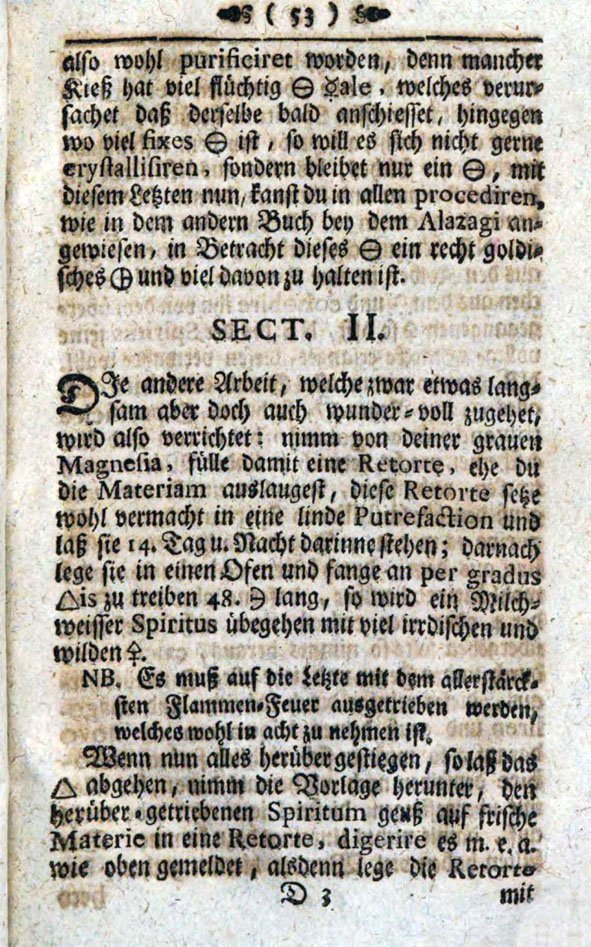 ( 53 )
also wohl purificiret worden, denn mancher
Kieß hat viel flüchtig 🜔 ☿ale, welches verur⸗
sachet daß derselbe bald anschiesset, hingegen
wo viel fixes 🜔 ist, so will es sich nicht gerne
crystallisiren, sondern bleibet nur ein 🜔, mit
diesem Letzten nun, kanst du in allen procediren,
wie in dem andern Buch bey dem Alazagi an⸗
gewiesen, in Betracht dieses 🜔 ein recht goldi⸗
sches 🜕 und viel davon zu halten ist.
SECT. II.
DIe andere Arbeit, welche zwar etwas lang⸗
sam aber doch auch wunder⸗voll zugehet,
wird also verrichtet: nimm von deiner grauen
Magnesia, fülle damit eine Retorte, ehe du
die Materiam auslaugest, diese Retorte setze
wohl vermacht in eine linde Putrefaction und
laß sie 14. Tag u. Nacht darinne stehen; darnach
lege sie in einen Ofen und fange an per gradus
🜂is zu treiben 48. lang, so wird ein Milch⸗
weisser Spiritus übegehen mit viel irrdischen und
wilden 🜍.
NB. Es muß auf die Letzte mit dem allerstärck⸗
sten Flammen⸗Feuer ausgetrieben werden,
welches wohl in acht zu nehmen ist.
Wenn nun alles herüber gestiegen, so laß das
🜂 abgehen, nimm die Vorlage herunter, den
herüber⸗getriebenen Spiritum geuß auf frische
Materie in eine Retorte, digerire es m. e. a.
wie oben gemeldet, alsdenn lege die Retorte
D 3 mit